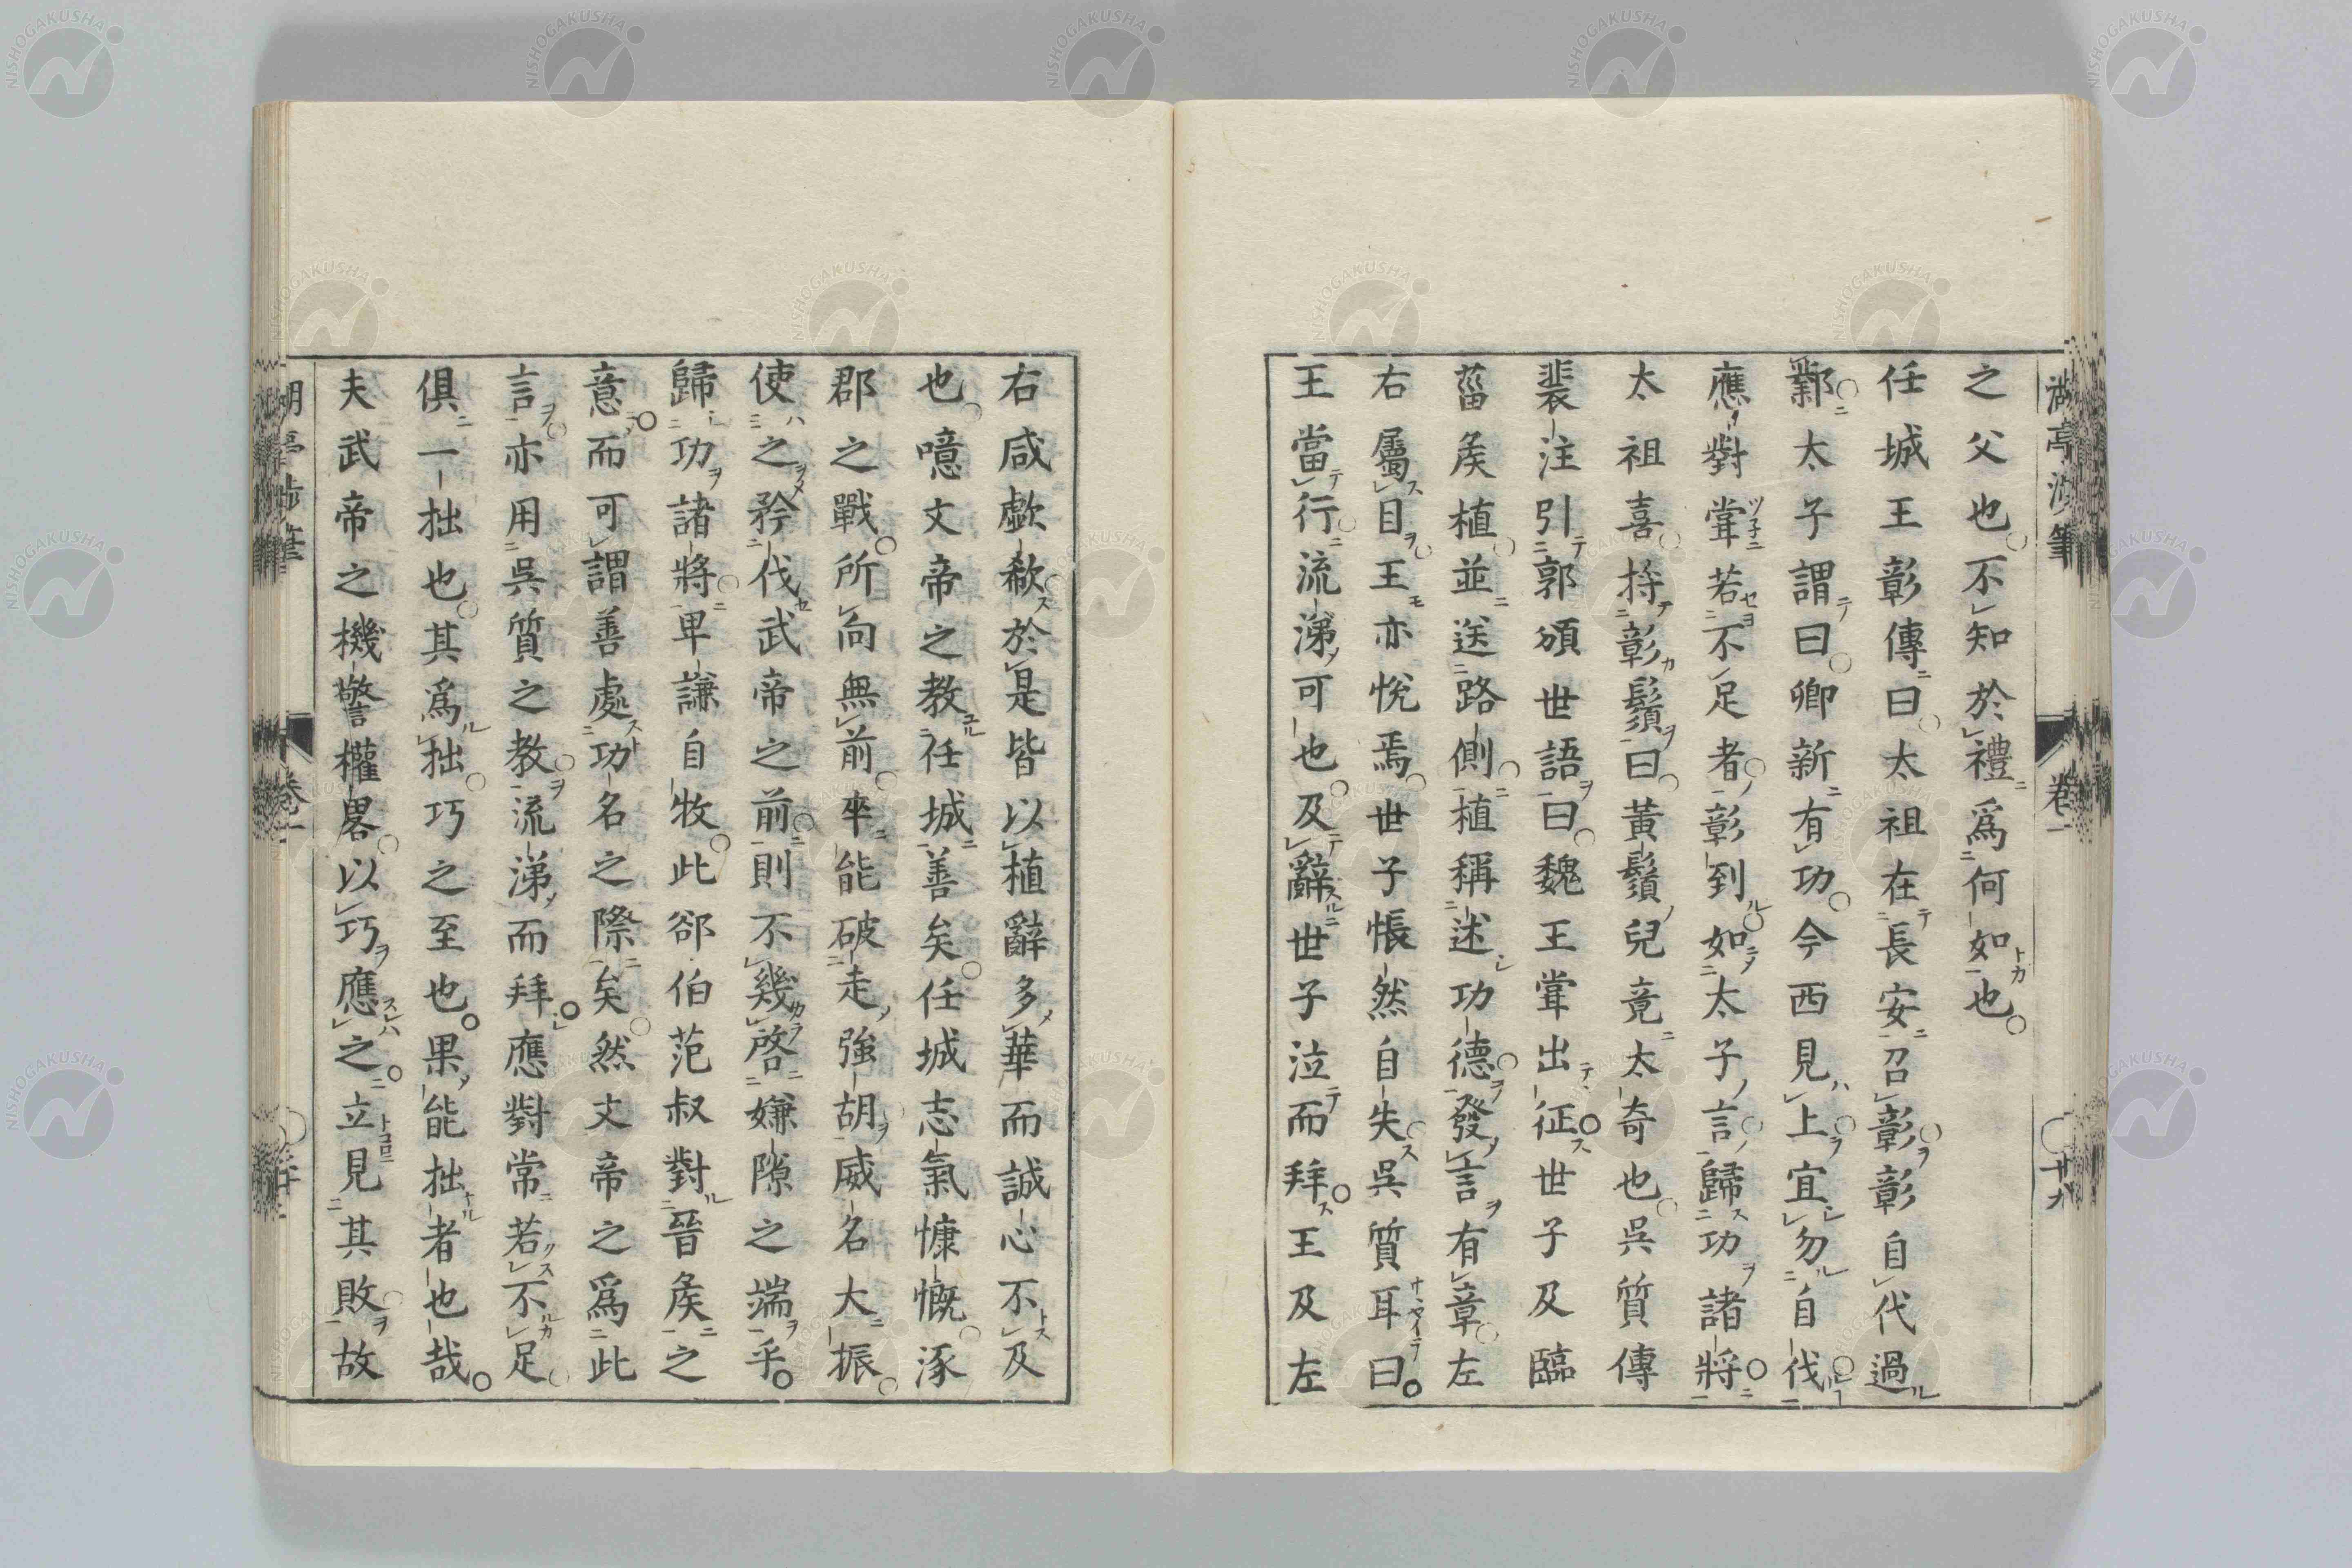 之父也不知於禮爲何如也
任城王彰傳曰太祖在長安召彰彰自代過
鄴太子謂曰卿新有功今西見上宜勿自伐
應對常若不足者彰到如太子言歸功諸將
太祖喜持彰鬚曰黃鬚兒竟太奇也吳質傳
裴注引郭頒世語曰魏王嘗出征世子及臨
菑矦植並送路側植稱述功德發言有章左
右屬目王亦悅焉世子悵然自失吳質耳曰
王當行流涕可也及辭世子泣而拜王及左
右咸歔欷於是皆以植辭多華而誠心不及
也噫文帝之教任城善矣任城志氣慷慨涿
郡之戰所向無前卒能破走強胡威名大振
使之矜伐武帝之前則不幾啓嫌隙之端乎
歸功諸將卑謙自牧此郤伯范叔對晉矦之
意而可謂善處功名之際矣然文帝之爲此
言亦用吳質之教流涕而拜應對常若不足
俱一拙也其爲拙巧之至也果能拙者也哉
夫武帝之機警權畧以巧應之立見其敗故
卷一
廿九
NISHOGAKUSHA